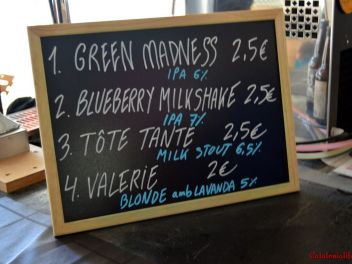 1. GREEN MADNESS 2,5€
IPA 6%
2. BLUEBERRY MILKSHAKE 2,5€
IPA 7%
3. TÔTE TANTE 2,5€
MILK STOUT 6,5%
4. VALERIE 2€
BLONDE amb LAVANDA 5%